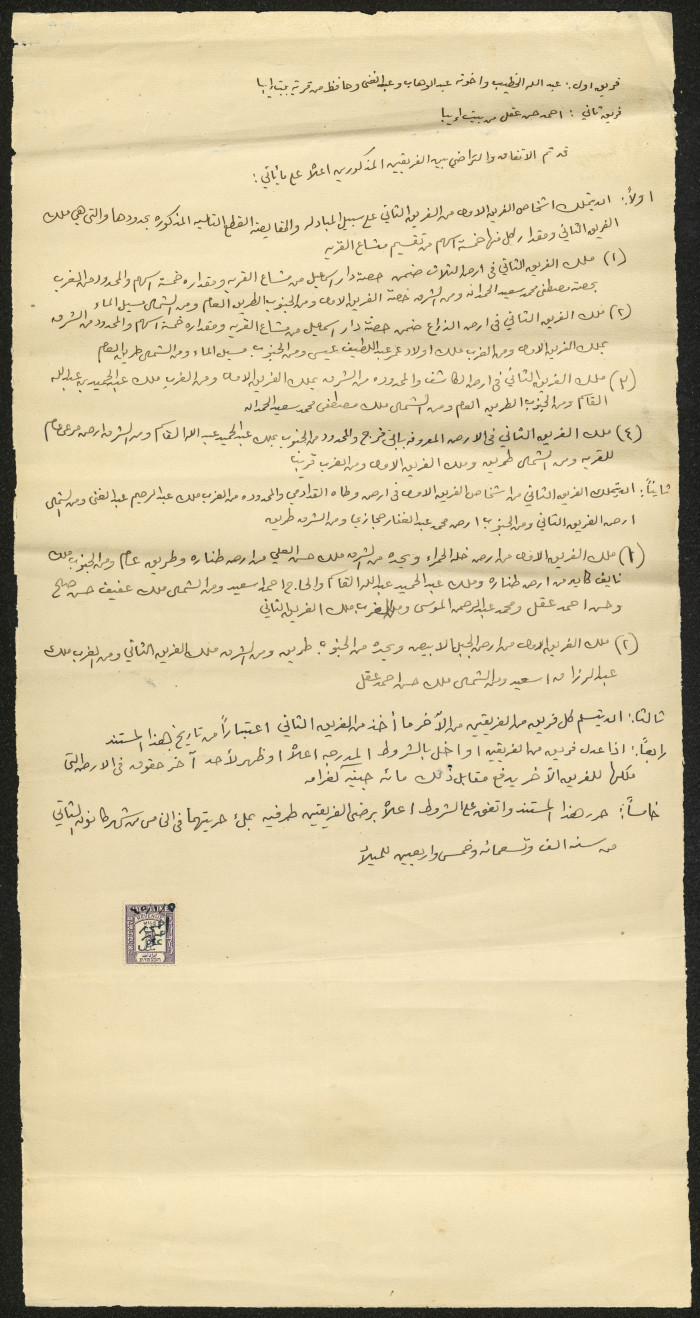 فريق اول : عبد الله الخطيب واخوته عبد الوهاب وعبد الغني وحافظ من قرية بيت ايبا
فريق ثاني : احمد حسن عقل من بيت ايبا
قد تم الاتفاق والتراضي بين الفريقين المذكورين اعلاه على ما يأتي :
اولاً : ان يتملك اشخاص الفريق الاول من الفريق الثاني على سبيل المبادله والمقايضة القطع التاليه المذكوره بحدودها والتي هي ملك
الفريق الثاني ومقدار كل منها خمسة اسهم من تقسيم مشاع القريه
(١) ملك الفريق الثاني في ارض ضمن حصة دار اسماعيل من مشاع القريه ومقداره خمسة اسهم والمحدود من الغرب
بحصة مصطفى محمد سعيد الحمدان ومن الشرق حصة الفريق الاول ومن الجنوب الطريق العام ومن الشمال مسيل الماء
(٢) ملك الفريق الثاني في ارض الذراع ضمن حصة دار اسماعيل من مشاع القريه ومقداره خمسة اسهم والمحدود من الشرق
بملك الفريق الاول ومن الغرب ملك اولاد عمر عبد اللطيف عيسى ومن الجنوب مسيل الماء ومن الشمال طريق العام
(٣) ملك الفريق الثاني في ارض الكاشف والمحدوده من الشرق بملك الفريق الاول ومن الغرب ملك عبد الحميد بن عبد الله
القاسم ومن الجنوب الطريق العام ومن الشمال ملك مصطفى محمد سعيد الحمدان
(٤) ملك الفريق الثاني في الارض المعروفه والمحدود من الجنوب بملك عبد الحميد عبد الله القاسم ومن الشرق ارض مرعى عام
للقريه ومن الشمال طريق وملك الفريق الاول ومن الغرب
ثانياً : ان يتملك الفريق الثاني من اشخاص الفريق الاول في ارض وطاه والمحدوده من الغرب ملك عبد الرحيم عبد الغني ومن الشمال
ارض الفريق الثاني ومن الجنوب ارض محمد عبد الغفار حجازي ومن الشرق طريق
(١) ملك الفريق الاول من ارض خلة الحمراء ويحده من الشرق ملك حسن العلي من ارض طناره وطريق عام ومن الجنوب ملك
نايف كايد من ارض طناره وملك عبد الحميد عبد الله القاسم والحاج احمد اسعيد ومن الشمال ملك عفيف حسن صالح
وحسن احمد عقل ومحمد عبد الرحمن الموسى ومن الغرب ملك الفريق الثاني
(٢) ملك الفريق الاول من ارض الجبل الابيض ويحده من الجنوب طريق ومن الشرق ملك الفريق الثاني ومن الغرب ملك
عبد الرزاق اسعيد ومن الشمال ملك حسن احمد عقل
ثالثا : ان يتسلم كل فريق من الفريقين من الآخر ما أخذ من الفريق الثاني اعتباراً من تاريخ هذا المستند
رابعاً : اذا عدل فريق من الفريقين او اخل بالشروط المدرجه اعلاه او ظهر لأحد آخر حقوق في الارض التي
ملكها للفريق الآخر يدفع مقابل ذلك مائة جنيه كغرامه
خامساً : حرر هذا المستند واتفق على الشروط اعلاه برضى الفريقين طرفيه بملء حريتهما في الخامس من شهر كانون الثاني
من سنة الف وتسعمائه وخمس واربعين للميلاد
REVENUE